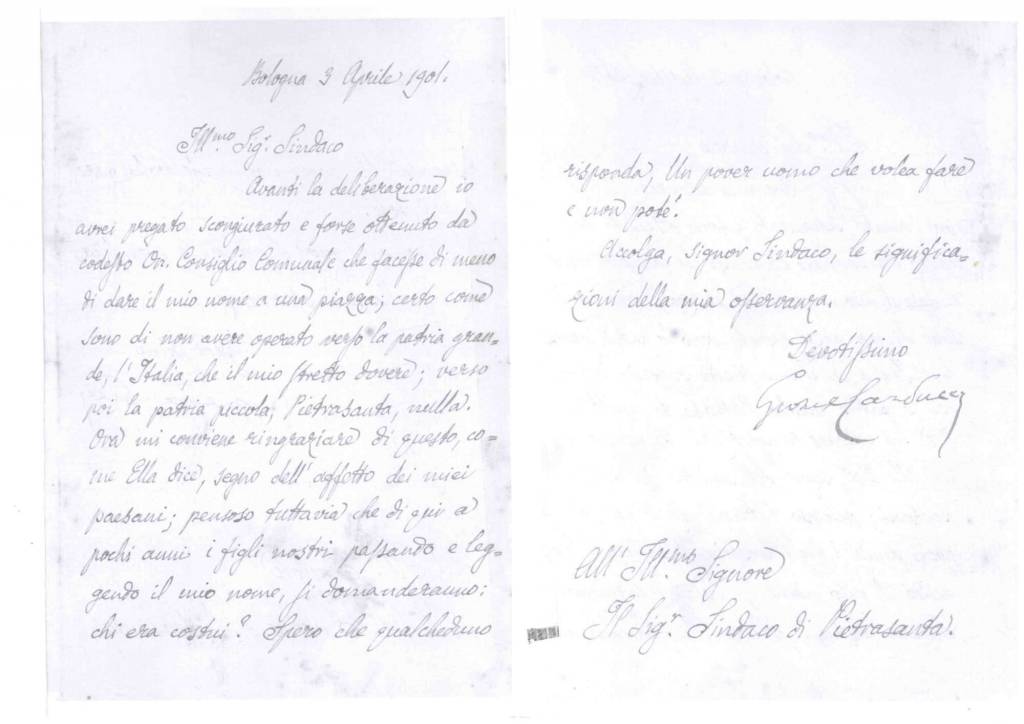 Bologna 3 Aprile 1901.
Ill.mo Sig.r Sindaco
Avanti la deliberazione io
avrei pregato scongiurato e forse ottenuto da
codesto On. Consiglio Comunale che facesse di meno
di dare il mio nome a una piazza; certo come
sono di non avere operato verso la patria gran=
de, l'Italia, che il mio stretto dovere; verso
poi la patria piccola, Pietrasanta, nulla.
Ora mi conviene ringraziare di questo, co=
me Ella dice, segno dell'affetto dei miei
paesani; pensoso tuttavia che di qui a
pochi anni i figli nostri passando e leg=
gendo il mio nome, si domanderanno:
chi era costui? Spero che qualcheduno
risponda, Un pover uomo che volea fare
e non poté.
Accolga, Signor Sindaco, le significa=
zioni della mia osservanza.
Devotissimo
Giosue Carducci
All' Ill.mo Signore
Il Sig.r Sindaco di Pietrasanta.